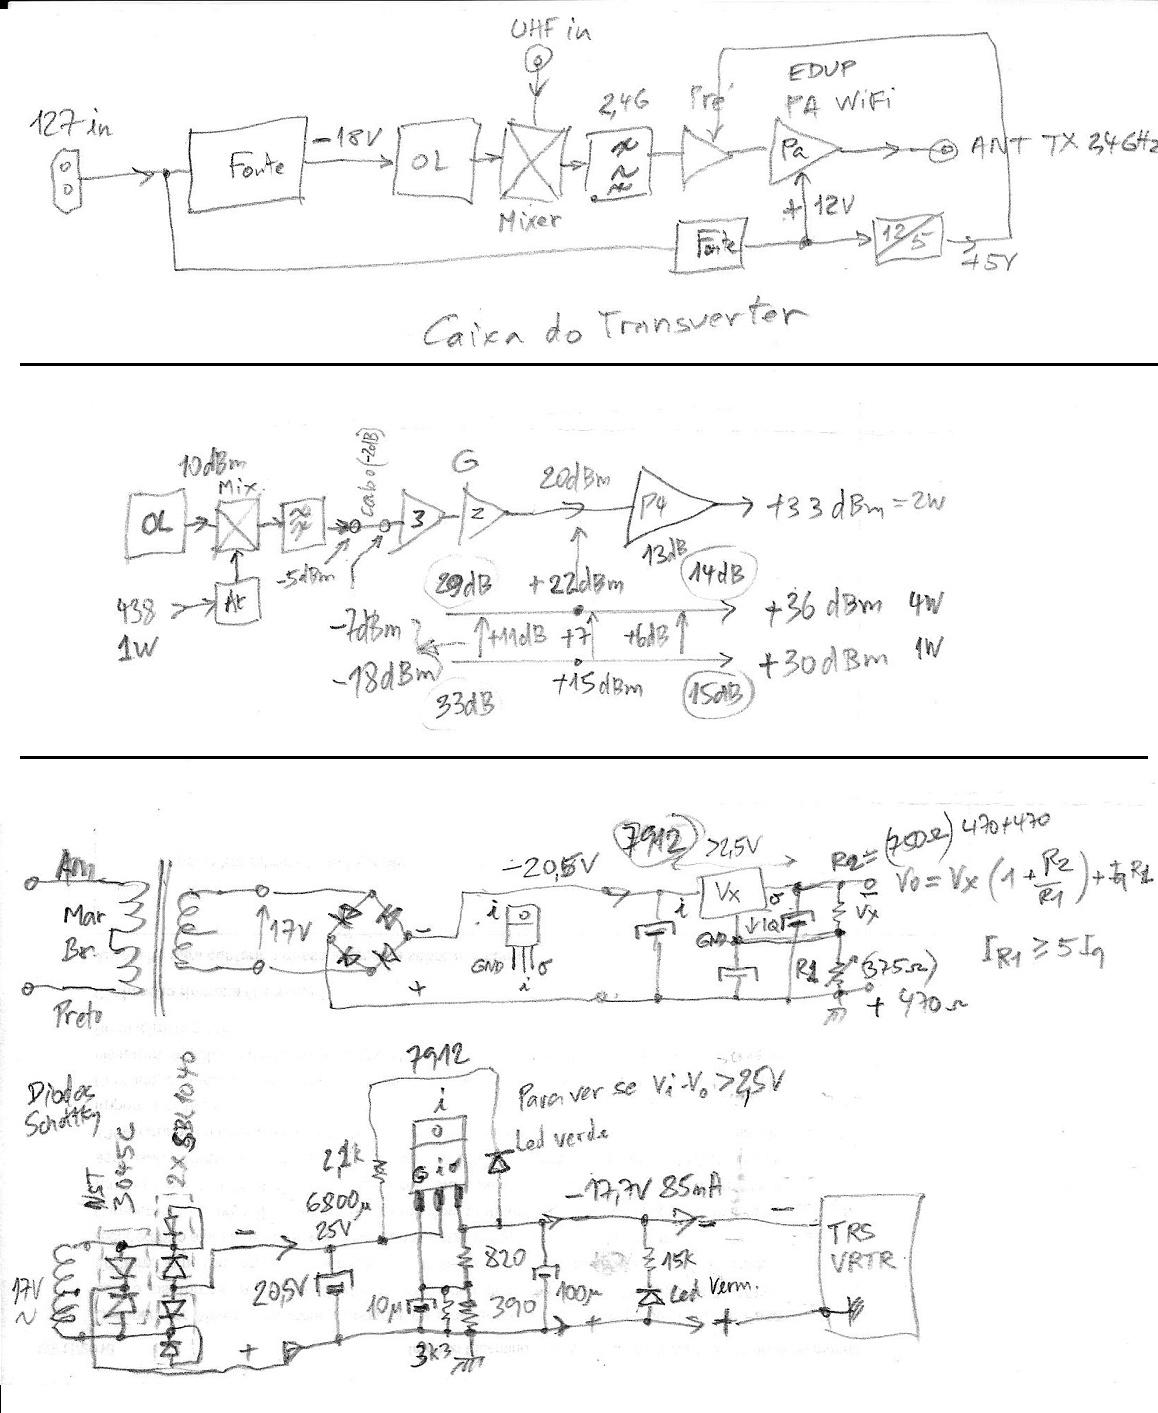 UHF in
127 in
Fonte
-18V
OL
Mixer
2,4G
Pré
EDUP
PA WiFi
Pa
ANT TX 2,4GHz
+ 12V
Fonte
12/5
+5V
Caixa do Transverter
10dBm
Mix.
OL
cabo (-2dB)
G
3
2
20dBm
P4
13dB
+33dBm = 2W
-5dBm
At
438
1W
29dB
+22dBm
14dB
+36 dBm 4W
-7dBm
+11dB
+7
+6dB
-18dBm
+15dBm
+30dBm 1W
33dB
15dB
Am
Mar
Br.
Preto
17V
-
+
-20,5V
i
o
GND
i
σ
7912
>2,5V
i
Vx
σ
GND
↓IQ
Vx
R2= (750Ω) 470+470
Vo = Vx (1 + R2/R1) + Iq R1
IR1 ≥ 5 Iq
R1
(375Ω)
+ 470Ω
Diodos
Schottky
3045C
2X SBL1040
17V
~
7912
i
o
G i o
2,1k
6800µ
25V
20,5V
Para ver se Vi-Vo > 2,5V
Led verde
-
-17,7V 85mA
-
TRS
VRTR
820
390
10µ
3k3
100µ
15k
Led Verm.
+
+
+